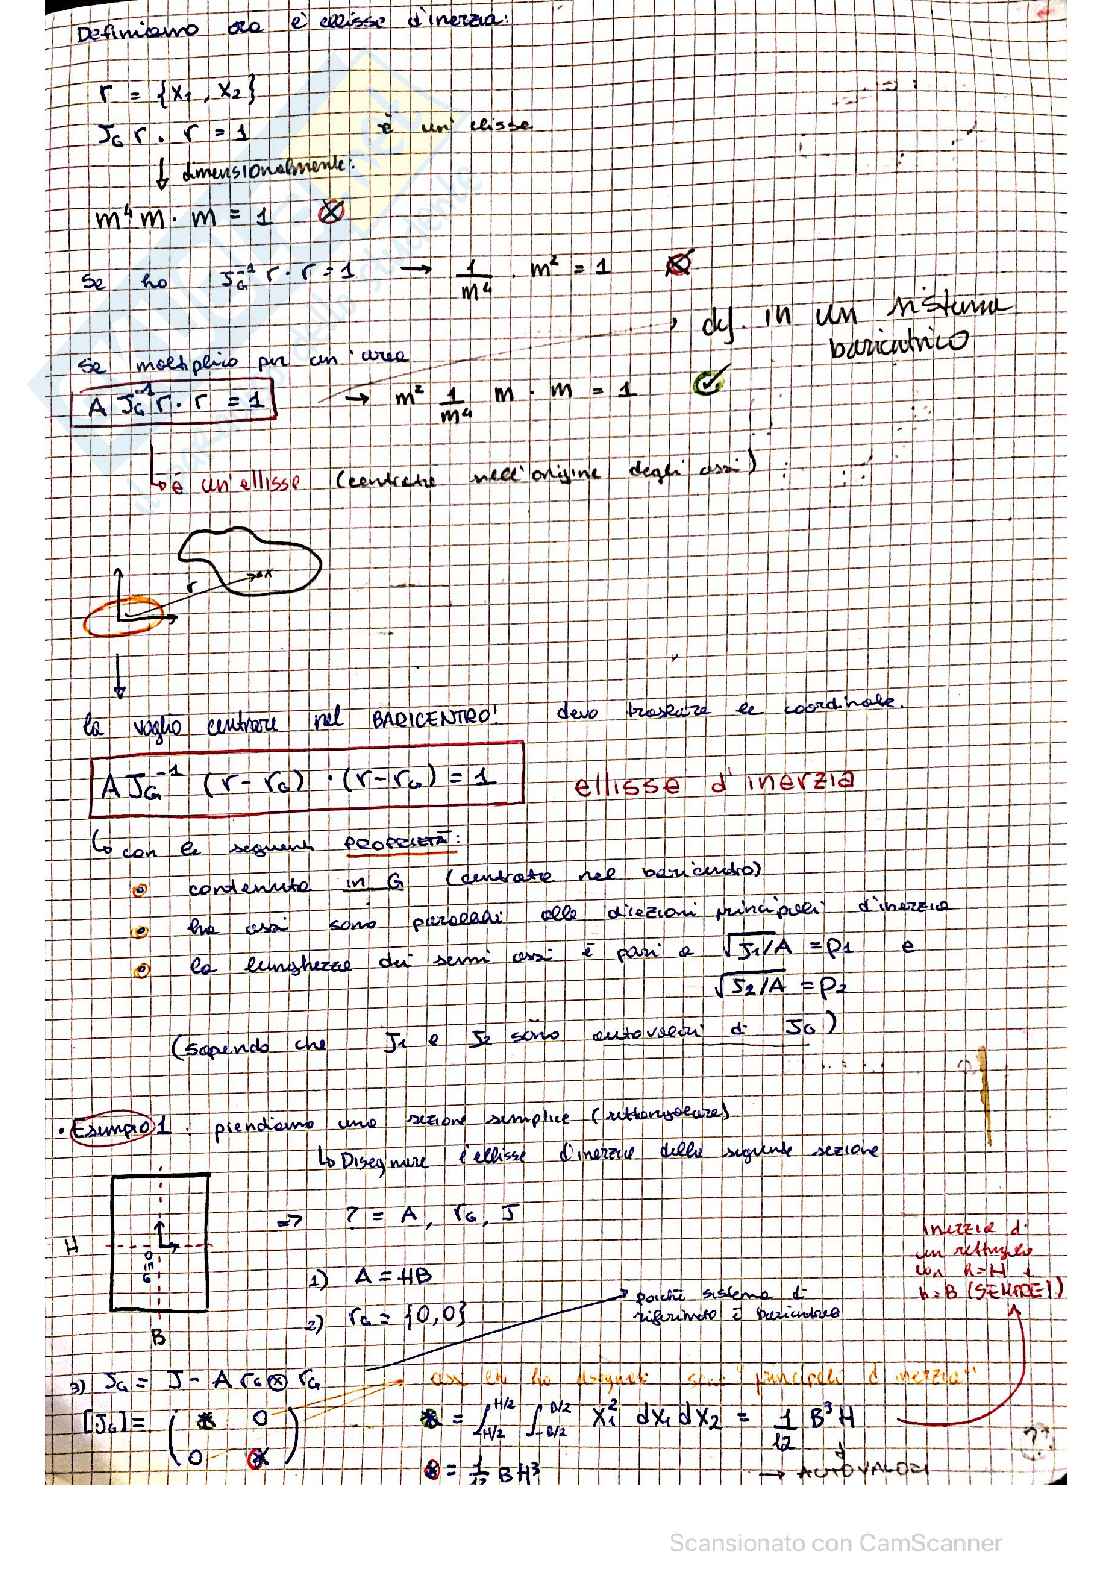 Definiamo ora l'ellisse d'inerzia:
r = {x₁, x₂}
J_G r · r = 1 è un'ellisse
↓ dimensionalmente:
m⁴ m · m = 1 ⊗
Se ho J_G⁻¹ r · r = 1 → 1/m⁴ · m² = 1 ⊗
def. in un sistema
baricentrico
Se moltiplico per un'area
A J_G⁻¹ r · r = 1 → m² 1/m⁴ m · m = 1 ✓
↳ è un'ellisse (centrata nell'origine degli assi)
r x
la voglio centrare nel BARICENTRO! devo traslare le coordinate.
A J_G⁻¹ (r - r_G) · (r - r_G) = 1 ellisse d'inerzia
↳ con le seguenti PROPRIETÀ:
contenuta in G (centrata nel baricentro)
ha assi sono paralleli alle direzioni principali d'inerzia
la lunghezza dei semi assi è pari a √J₁/A = ρ₁ e
√J₂/A = ρ₂
(sapendo che J₁ e J₂ sono autovalori di J_G)
• Esempio 1: prendiamo una sezione semplice (rettangolare)
↳ Disegnare l'ellisse d'inerzia della seguente sezione
=> ? = A, r_G, J
H
O≡G
B
1) A = HB
2) r_G = {0,0}
poiché sistema di
riferimento è baricentrico
inerzia di
un rettangolo
con h=H e
b=B (SEMPRE!)
3) J_G = J - A r_G ⊗ r_G
assi che ho disegnato sono "principali d'inerzia"
[J_G] = ( * 0
0 * )
* = ∫_{H/2}^{H/2} ∫_{-B/2}^{B/2} x₁² dx₁ dx₂ = 1/12 B³H
* = 1/12 BH³
→ AUTOVALORI
Scansionato con CamScanner